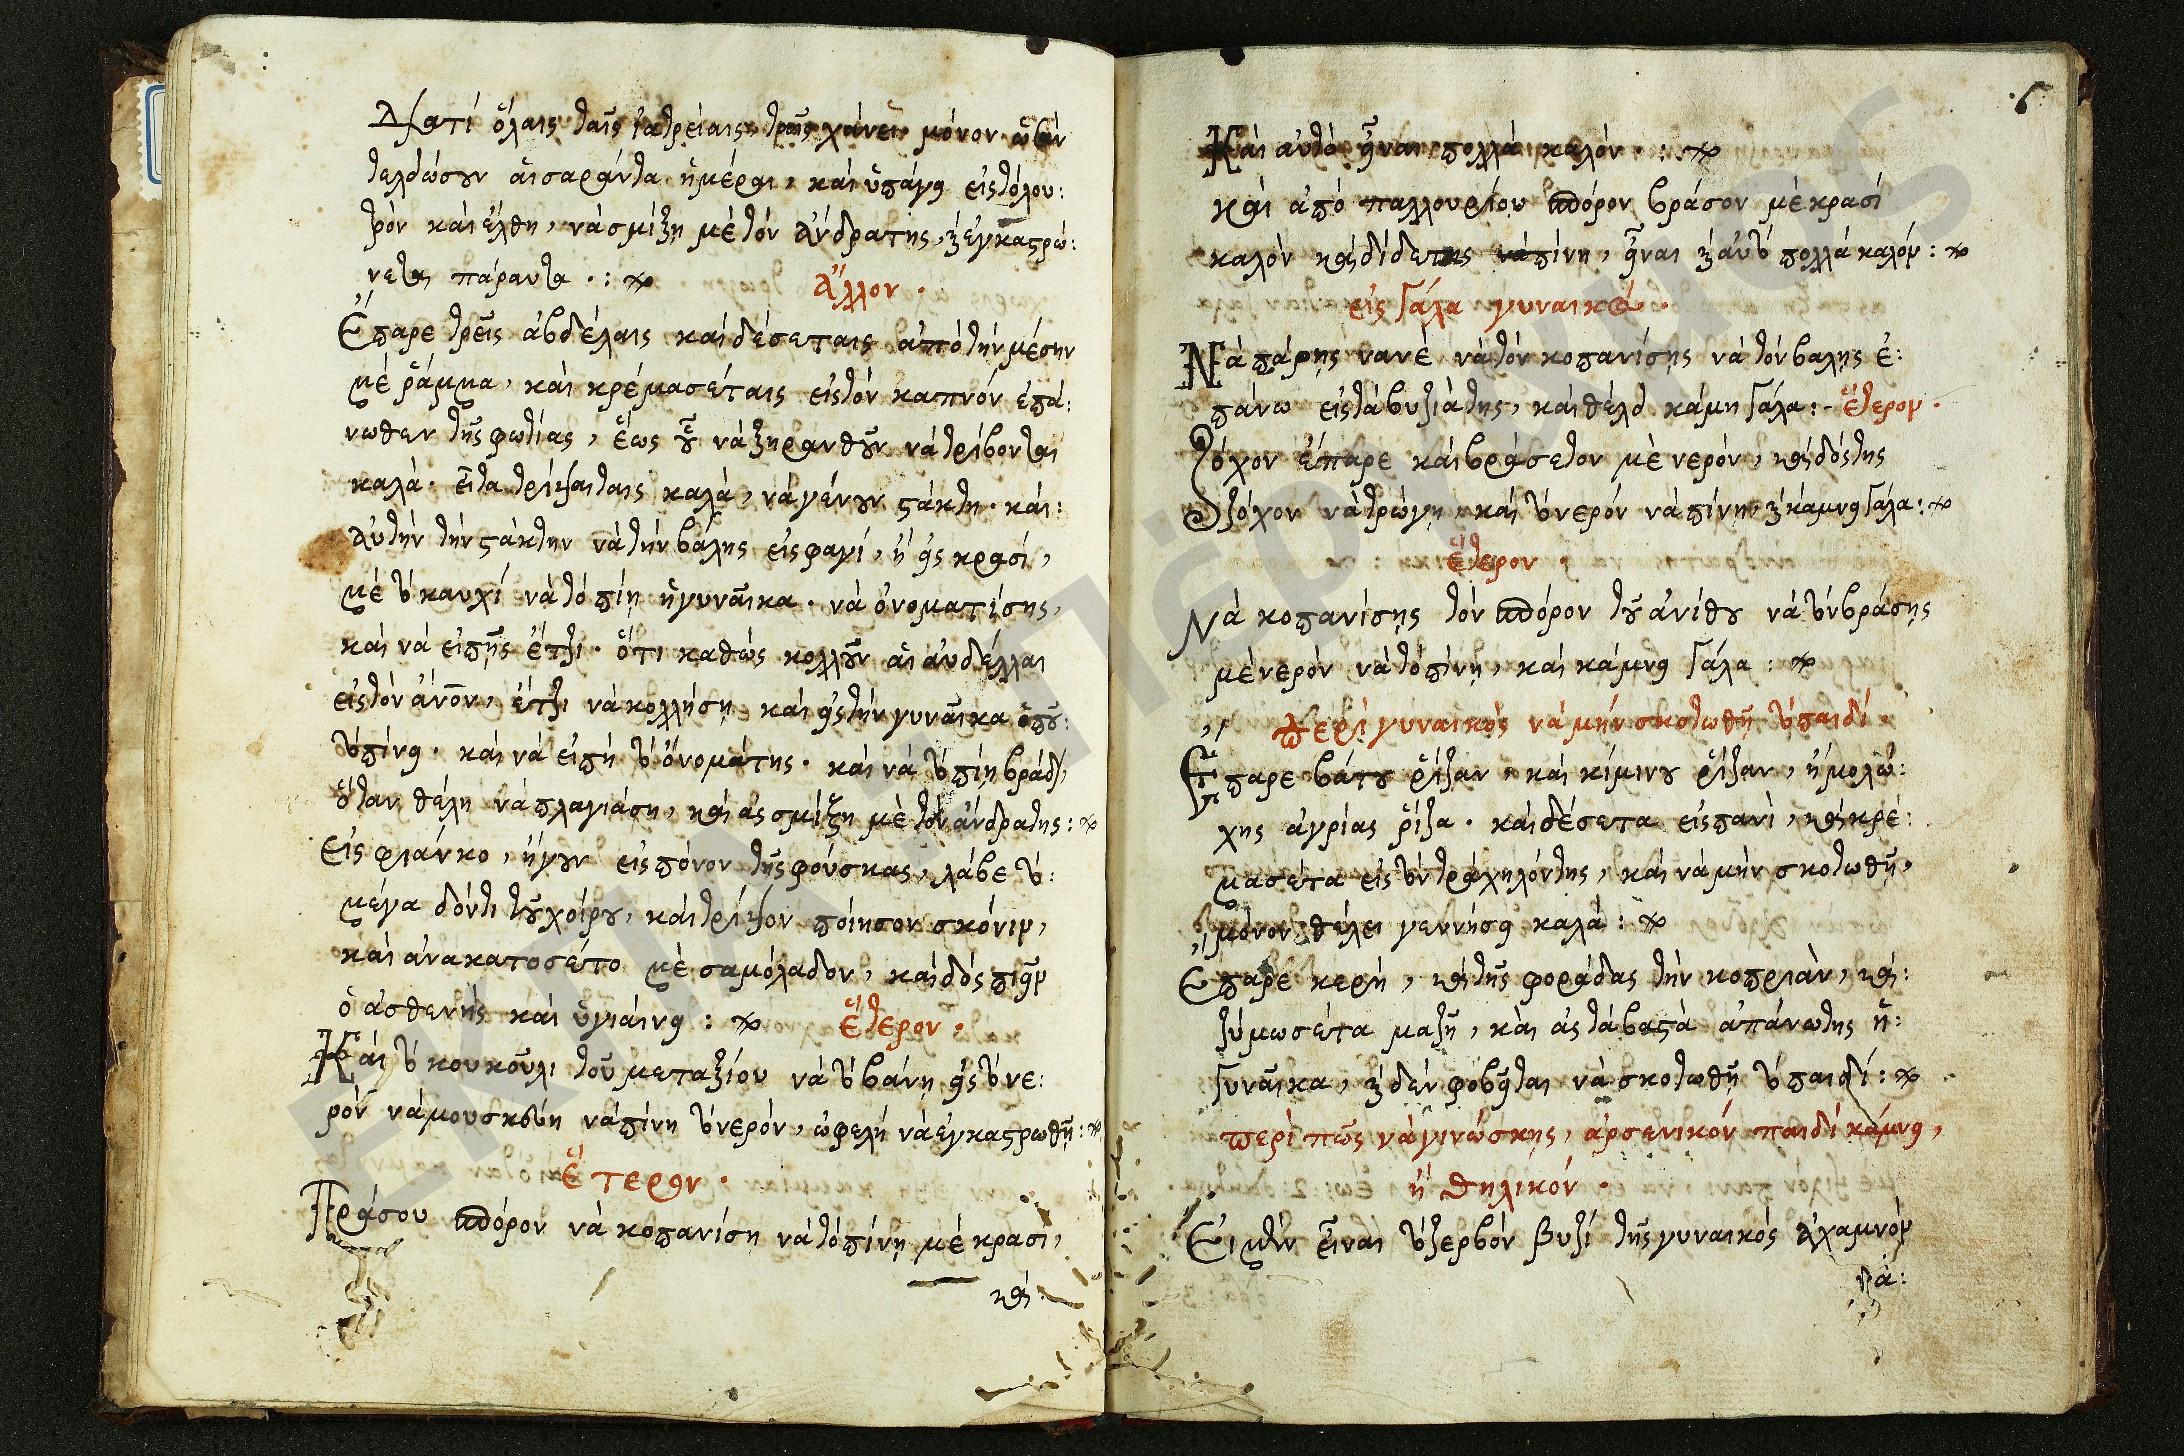 Διατί ὅλαις ταῖς ἰατρείαις ταῖς χάνει μόνον ὡσὰν
τελειώσουν ἁι σαράντα ἡμέραι, καὶ ὑπάγει εἰς τὸ λου:
τρόν καὶ ἔλθη, νὰ σμίξῃ μὲ τὸν ἄνδρα της, κ̀ ἐγκαστρώ:
νεται πάραυτα .:
ἄλλον .
Ἔπαρε τρεῖς ἀβδέλαις καὶ δέσε ταις ἀπὸ τὴν μέσην
μὲ ῥάμμα, καὶ κρέμασέ ταις εἰς τὸν καπνόν ἐπά:
νωθεν τῆς φωτίας, ἕως οὗ νὰ ξηρανθοῦν νὰ τρίβονται
καλά. εἶτα τρίψαι ταις καλὰ, νὰ γένουν στάκτη. καὶ:
αὐτὴν τὴν στάκτην νὰ τὴν βάλῃς εἰς φαγί, ἢ εἰς κρασί,
μὲ τὸ καυχί νὰ τὸ πίῃ ἡ γυναῖκα. νὰ ὀνοματίσῃς,
καὶ νὰ εἰπῇς ἔτζι. ὅτι καθὼς κολλοῦν ἁι ἀνδέλλαι
εἰς τὸν ἄνον, ἔτζι νὰ κολλήσῃ καὶ εἰς τὴν γυναῖκα ὁποῦ:
τὸ πίνει. καὶ νὰ εἰπῇ τὸ ὄνομά της. καὶ νὰ τὸ πίῃ βράδυ,
ὅταν θέλη νὰ πλαγιάσῃ, καὶ ἂς σμίξῃ μὲ τὸν ἄνδρα της:
Εἰς φιάνκο, ἤγουν εἰς πόνον τῆς φούσκας, λάβε τὸ:
μέγα δόντι τοῦ χοίρου, καὶ τρίψον ποίησον σκόνιν,
καὶ ἀνακάτοσέ το μὲ σαμόλαδον, καὶ δὸς πιεῖν
ὁ ἀσθενής καὶ ὑγιάινει :
ἕτερον .
Καὶ τὸ κουκοῦλι τοῦ μεταξίου νὰ τὸ βάνῃ εἰς τὸ νε:
ρόν νὰ μουσκεύη νὰ πίνη τὸ νερόν, ὠφελῆ νὰ ἐγκαστρωθῇ:
ἕτερον .
Πράσου σπόρον νὰ κοπανίσῃ νὰ τὸ πίνῃ μὲ κρασί,
καὶ.
6
Καὶ αὐτὸ εἶναι πολλὰ καλόν . :
καὶ ἀπό παλλουρίου σπόρον βράσον μὲ κρασί
καλὸν καὶ δίδε της νὰ πίνη, εἶναι κ̀ αὐτὸ πολλὰ καλόν :
εἰς γάλα γυναικός .
Νὰ πάρῃς νανέ νὰ τὸν κοπανίσῃς νὰ τὸν βάλῃς ἐ:
πάνω εἰς τὰ βυζιά της, καὶ θέλει κάμη γάλα: ἕτερον .
Ζόχον ἔπαρε καὶ βράσε τον μὲ νερόν, καὶ δός της
τὸ ζόχον νὰ τρώγῃ καὶ τὸ νερόν νὰ πίνῃ, κ̀ κάμνει γάλα :
ἕτερον .
Νὰ κοπανίσῃς τὸν σπόρον τοῦ ἀνίθου νὰ τὸν βράσῃς
μὲ νερόν νὰ τὸ πίνῃ, καὶ κάμνει γάλα :
Περὶ γυναικὸς νὰ μὴν σκοτωθῇ τὸ παιδί .
Ἔπαρε βάτου ῥίζαν, καὶ κίμινου ῥίζαν, ἡ μολώ:
χης ἀγρίας ῥίζα. καὶ δέσε τα εἰς πανὶ, καὶ κρέ:
μασέ τα εἰς τὸν τράχηλόν της, καὶ νὰ μὴν σκοτωθῇ,
μόνον θέλει γεννήσει καλά :
Ἔπαρε κερὴ, καὶ τῆς φοράδας τὴν κοπριὰν, καὶ:
ζύμωσέ τα μαζῆ, καὶ ἂς τὰ βαστᾶ ἀπάνω της ἡ:
γυναῖκα, κ̀ δὲν φοβεῖται νὰ σκοτωθῇ τὸ παιδί :
Περὶ πῶς νὰ γινώσκῃς, ἀρσενικόν παιδὶ κάμνει,
ἢ θηλικόν .
Εἰ μὲν εἶναι τὸ ζερβόν βυζί τῆς γυναικός ἀχαμνόν
νά: